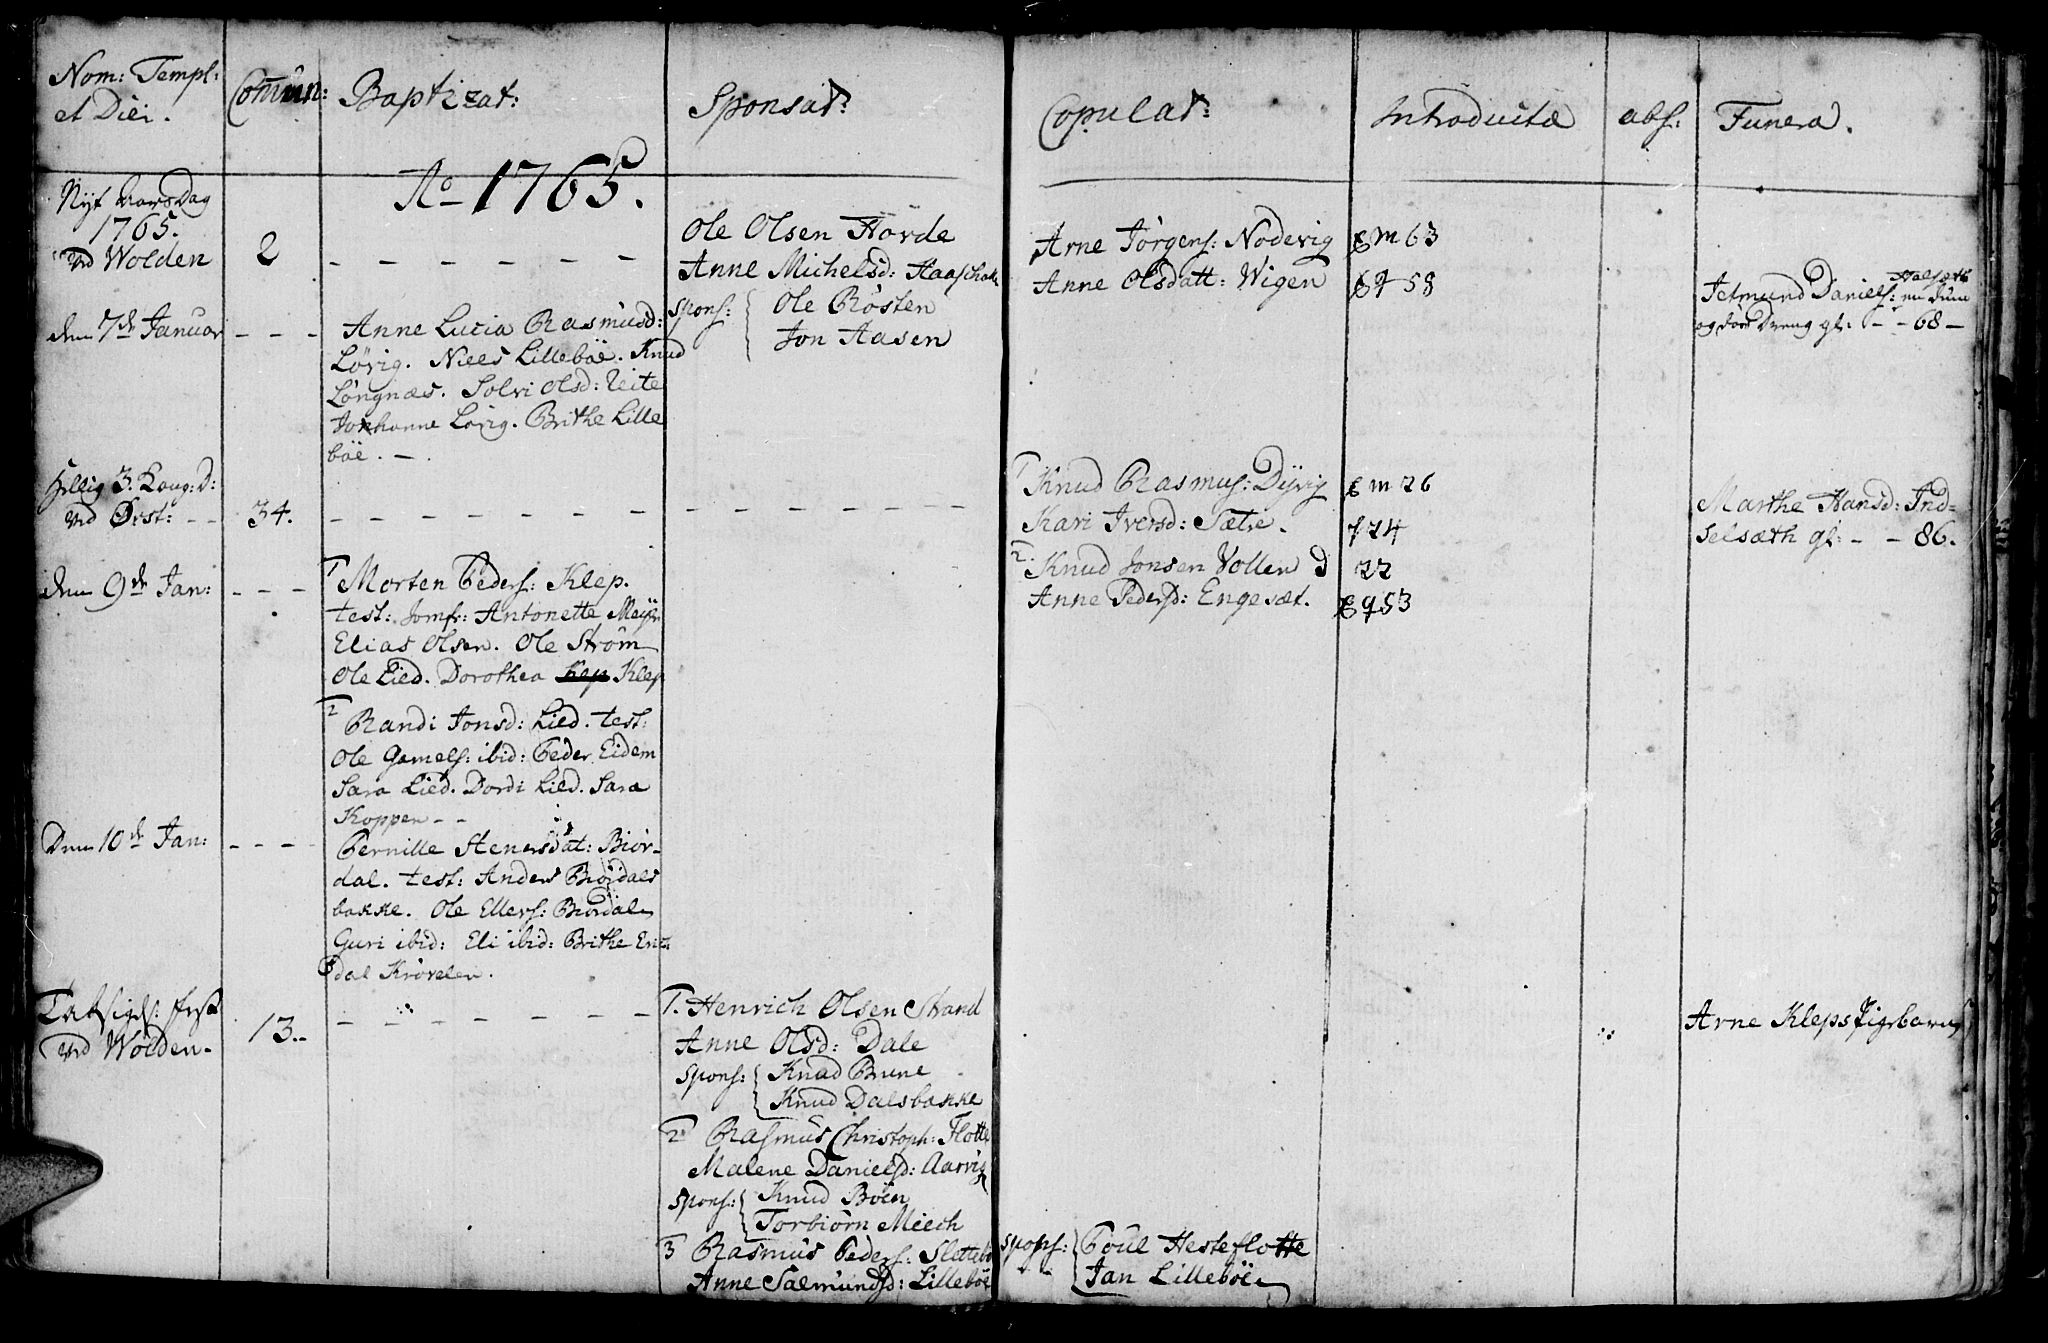 Nom: Templ:
et Diei.
Comun:
Baptizat:
Sponsat:
Copulat:
Introductæ
abs:
Funera.
Ao 1765.
Nyt Aars Dag
1765.
ved Wolden
2
Ole Olsen Hørde
Anne Michelsd: Aaaschak
spons: Ole Røsten
Jon Aasen
Arne Jørgens: Nodevig
Anne Olsdatt: Wigen
E m 63
E q 58
Jetmund Daniels: Halsæth en dum
og døv Dreng gl: - - 68 -
den 7de Januar - - -
Anne Lucia Rasmusd:
Lørig. Niels Lillebøe. Knud
Longnæs. Solvi Olsd: Leite
Johanne Lørig. Brithe Lille
bøe. -.
Hellig 3. Kong: D:
ved Ørst: - -
34.
1 Knud Rasmus: Dyvig
Kari Iversd: Sætre.
2 Knud Jonsen Vollen
Anne Pedersd: Engesæt.
E m 26
124
22
E q 53
Marthe Hansd: Ind=
selsæth gl: - - 86.
den 9de Jan: - - -
1 Morten Peders: Klep.
test: Jomfr: Antonette Meyer
Elias Olsen. Ole Strøm
Ole Lied. Dorothea Klep Klep
2 Randi Jonsd: Lied. test:
Ole Gamels: ibid: Peder Eidem
Sara Lied. Dordi Lied. Sara
Koppen - -
Den 10de Jan: - - - -
Pernille Stenersdat: Biør-
dal. test: Anders Biørdals
bakke. Ole Ellers: Biørdal
Guri ibid: Eli ibid: Brithe
dal Krøvelen.
fest
ved Wolden.
13.
1. Henrich Olsen Strand
Anne Olsd: Dale
spons: Knud Brune
Knud Dalsbakke
2 Rasmus Christoph: Flotte
Malene Danielsd: Aarvig
spons: Knud Bøen
Torbiørn Mech
3 Rasmus Peders: Slettebø
Anne Salmundsd: Lillebøe
spons: Poul Hesteflotte
Jan Lillebøe
Arne Kleps Pigebarn